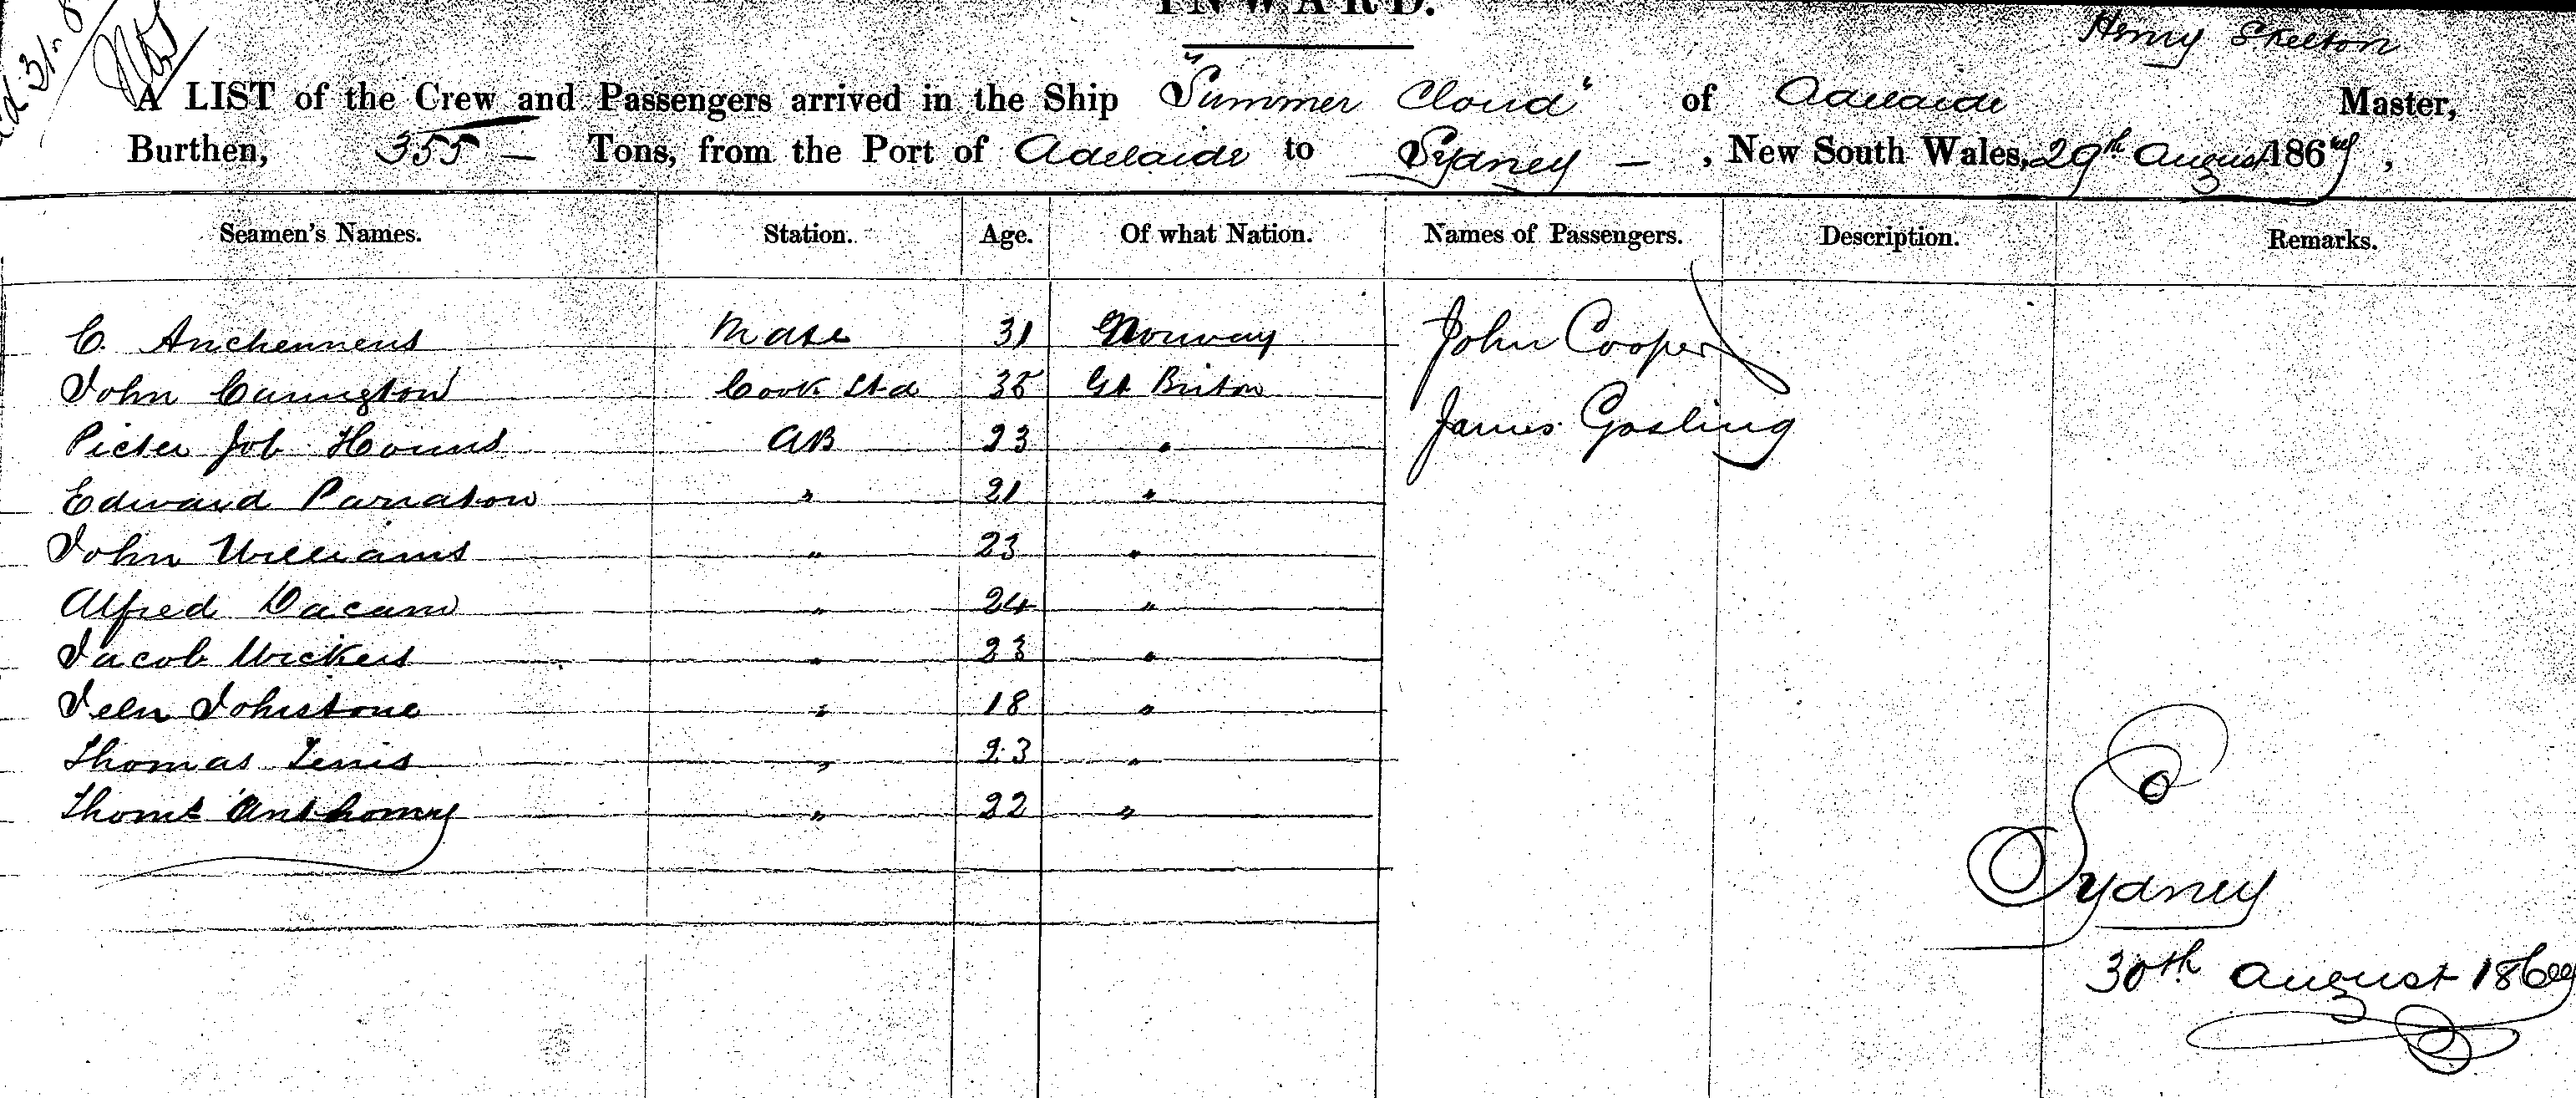 INWARD.
Henry Skelton
A LIST of the Crew and Passengers arrived in the Ship "Summer Cloud" of Adelaide Master,
Burthen, 355 — Tons, from the Port of Adelaide to Sydney — , New South Wales, 29th August 186 ,
Seamen's Names. Station. Age. Of what Nation. Names of Passengers. Description. Remarks.
C. Mate 31 Norway John Cooper
John Carrington Cook Std 35 Gt Briton James Gosling
Pieter Job Houns AB 23 "
Edward " 21 "
John Williams " 23 "
Alfred " 24 "
Jacob Wickers " 23 "
Johnstone " 18 "
Thomas " 23 "
Thoms Anthony " 22 "
Sydney
30th August 186